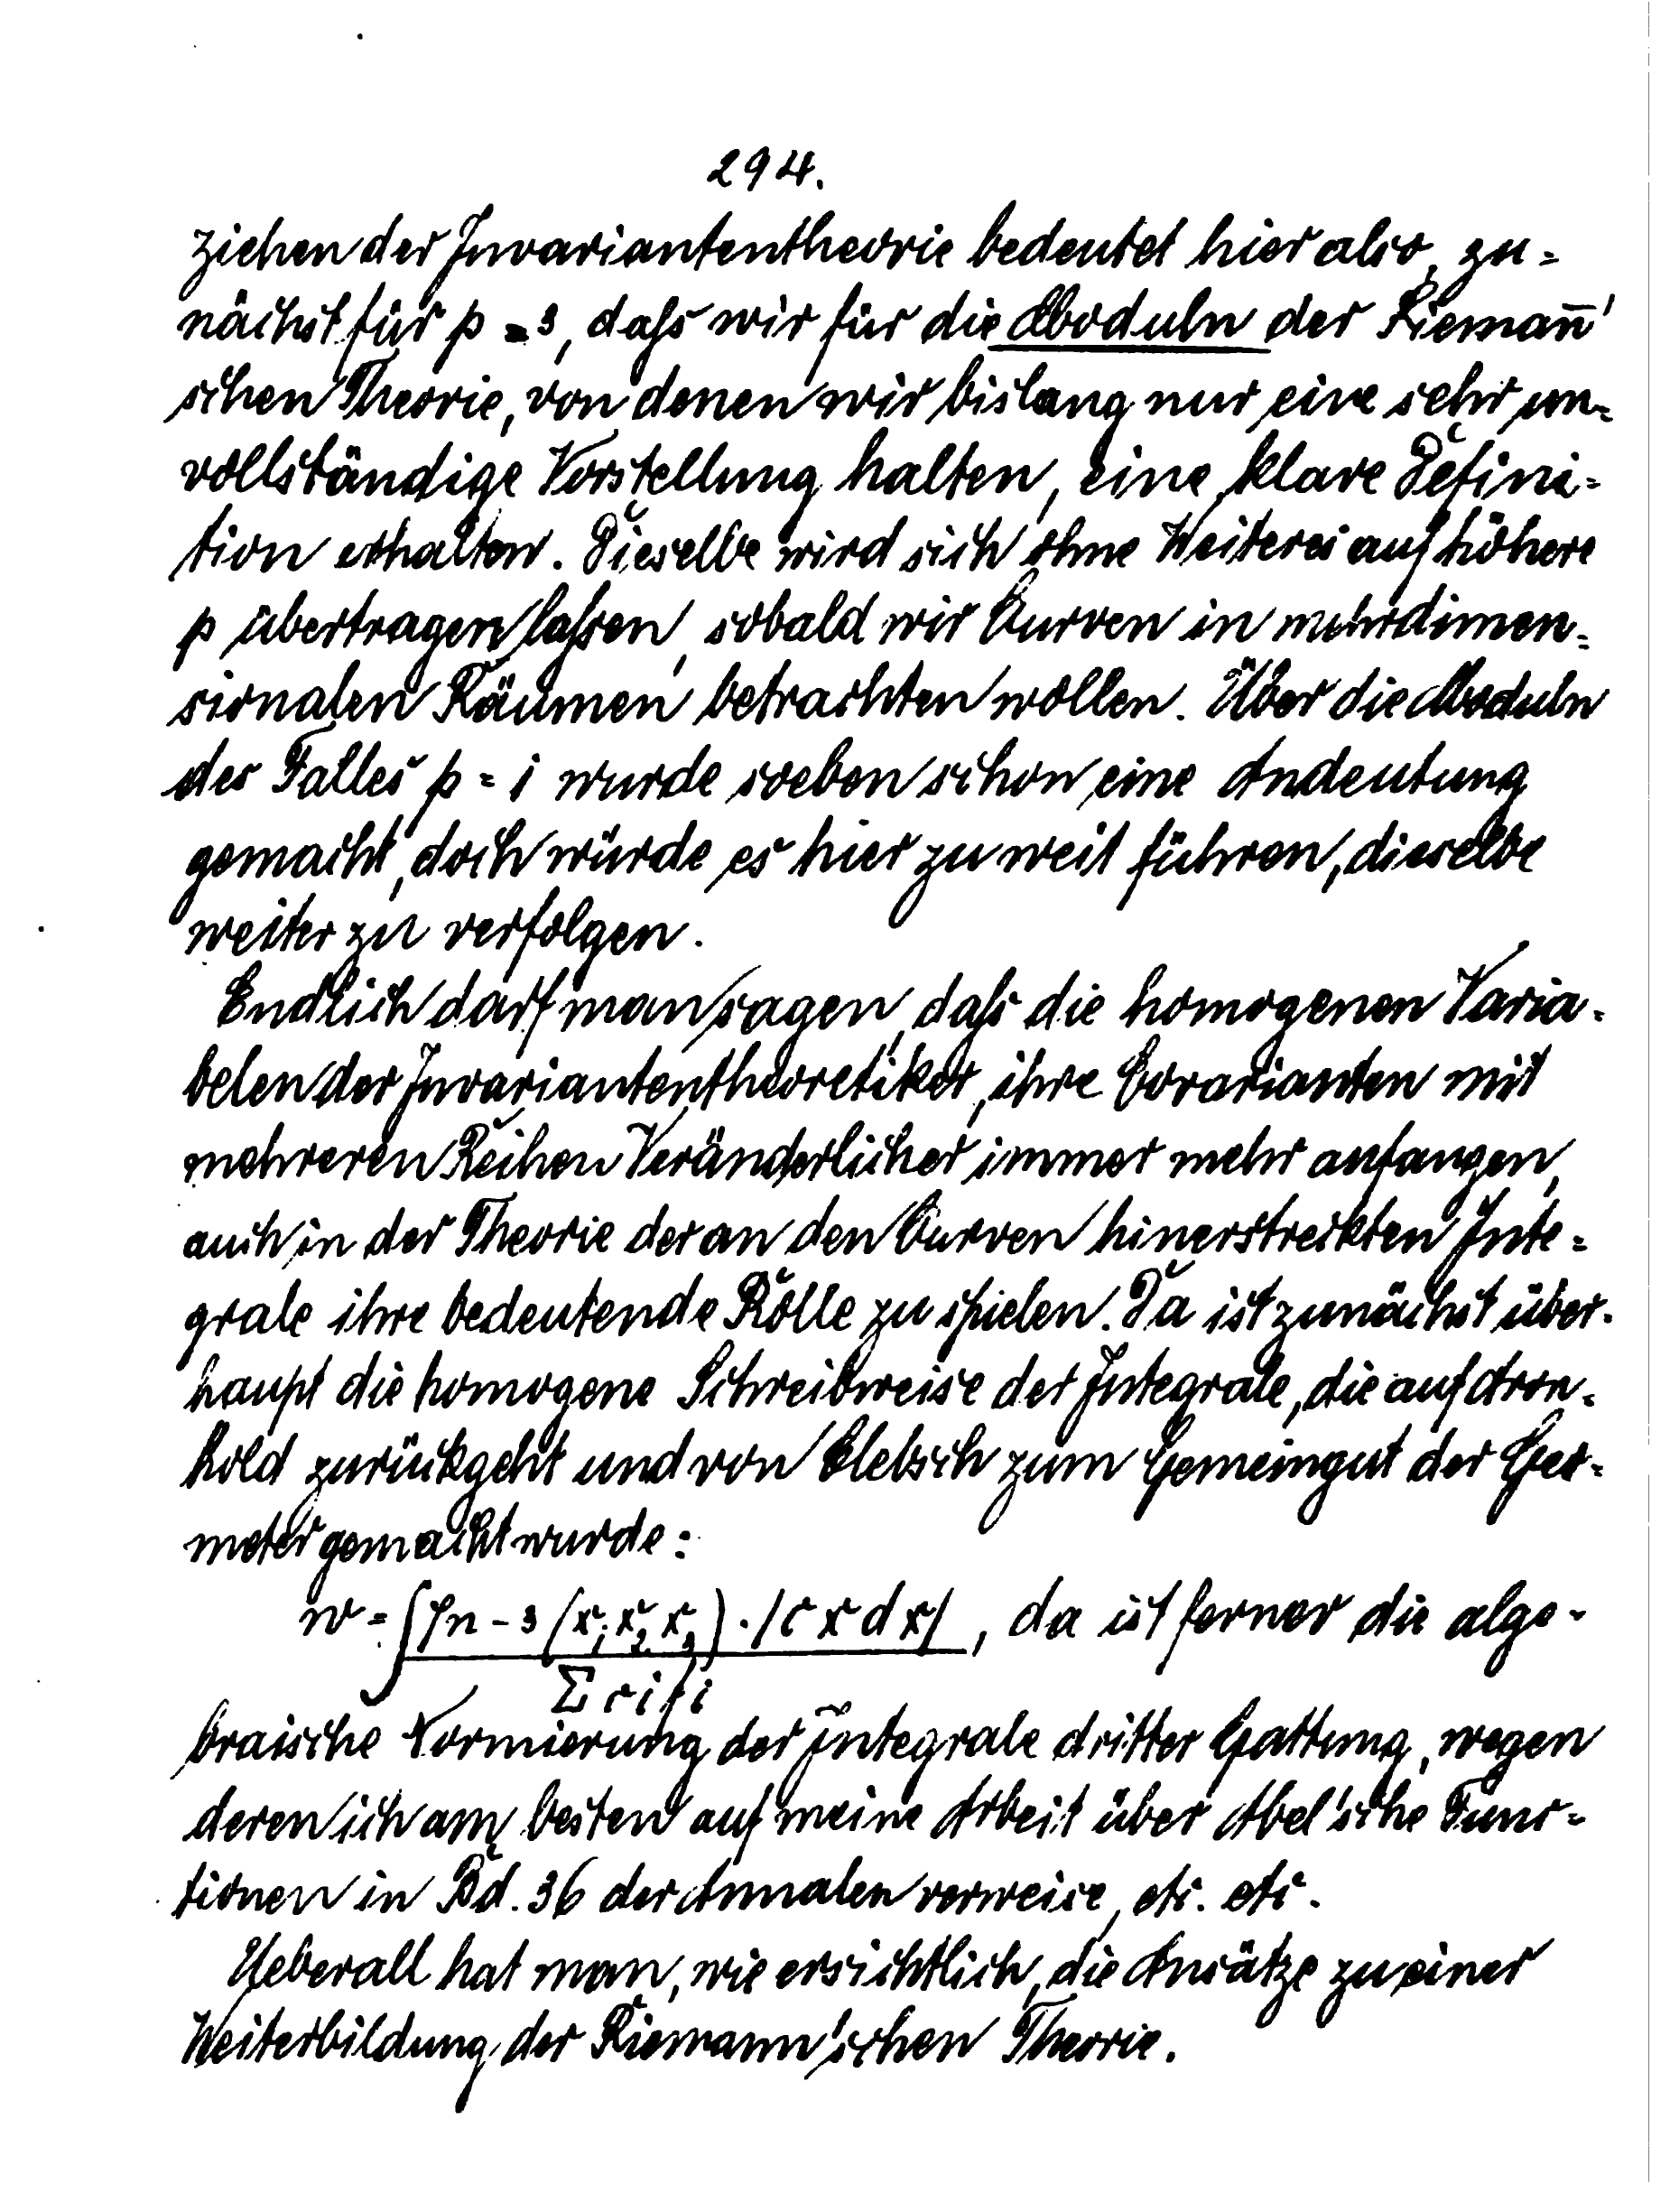 294.
ziehen der Invariantentheorie bedeutet hier also, zu=
nächst für p = 3, daß wir für die Moduln der Rieman̄'
schen Theorie, von denen wir bislang nur eine sehr un=
vollständige Vorstellung hatten, eine klare Defini=
tion erhalten. Dieselbe wird sich ohne Weiteres auf höhere
p übertragen laßen, sobald wir Curven in mehrdimen=
sionalen Räumen betrachten wollen. Über die Moduln
des Falles p = 1 wurde soeben schon eine Andeutung
gemacht, doch würde es hier zu weit führen, dieselbe
weiter zu verfolgen.
Endlich darf man sagen, daß die homogenen Varia=
belen der Invariantentheoretiker, ihre Covarianten mit
mehreren Reihen Veränderlicher immer mehr anfangen,
auch in der Theorie der an den Curven hinerstreckten Inte=
grale ihre bedeutende Rolle zu spielen. Da ist zunächst über=
haupt die homogene Schreibweise der Integrale, die auf Aron=
hold zurückgeht und von Clebsch zum Gemeingut der Geo=
meter gemacht wurde:
w = ∫ φn-3 (x₁ x₂ x₃) · |c x dx| / Σ ci fi, da ist ferner die alge=
braische Normierung der Integrale dritter Gattung, wegen
deren ich am besten auf meine Arbeit über Abel'sche Func=
tionen in Bd. 36 der Annalen verweise, etc. etc.
Ueberall hat man, wie ersichtlich, die Ansätze zu einer
Weiterbildung der Riemann'schen Theorie.